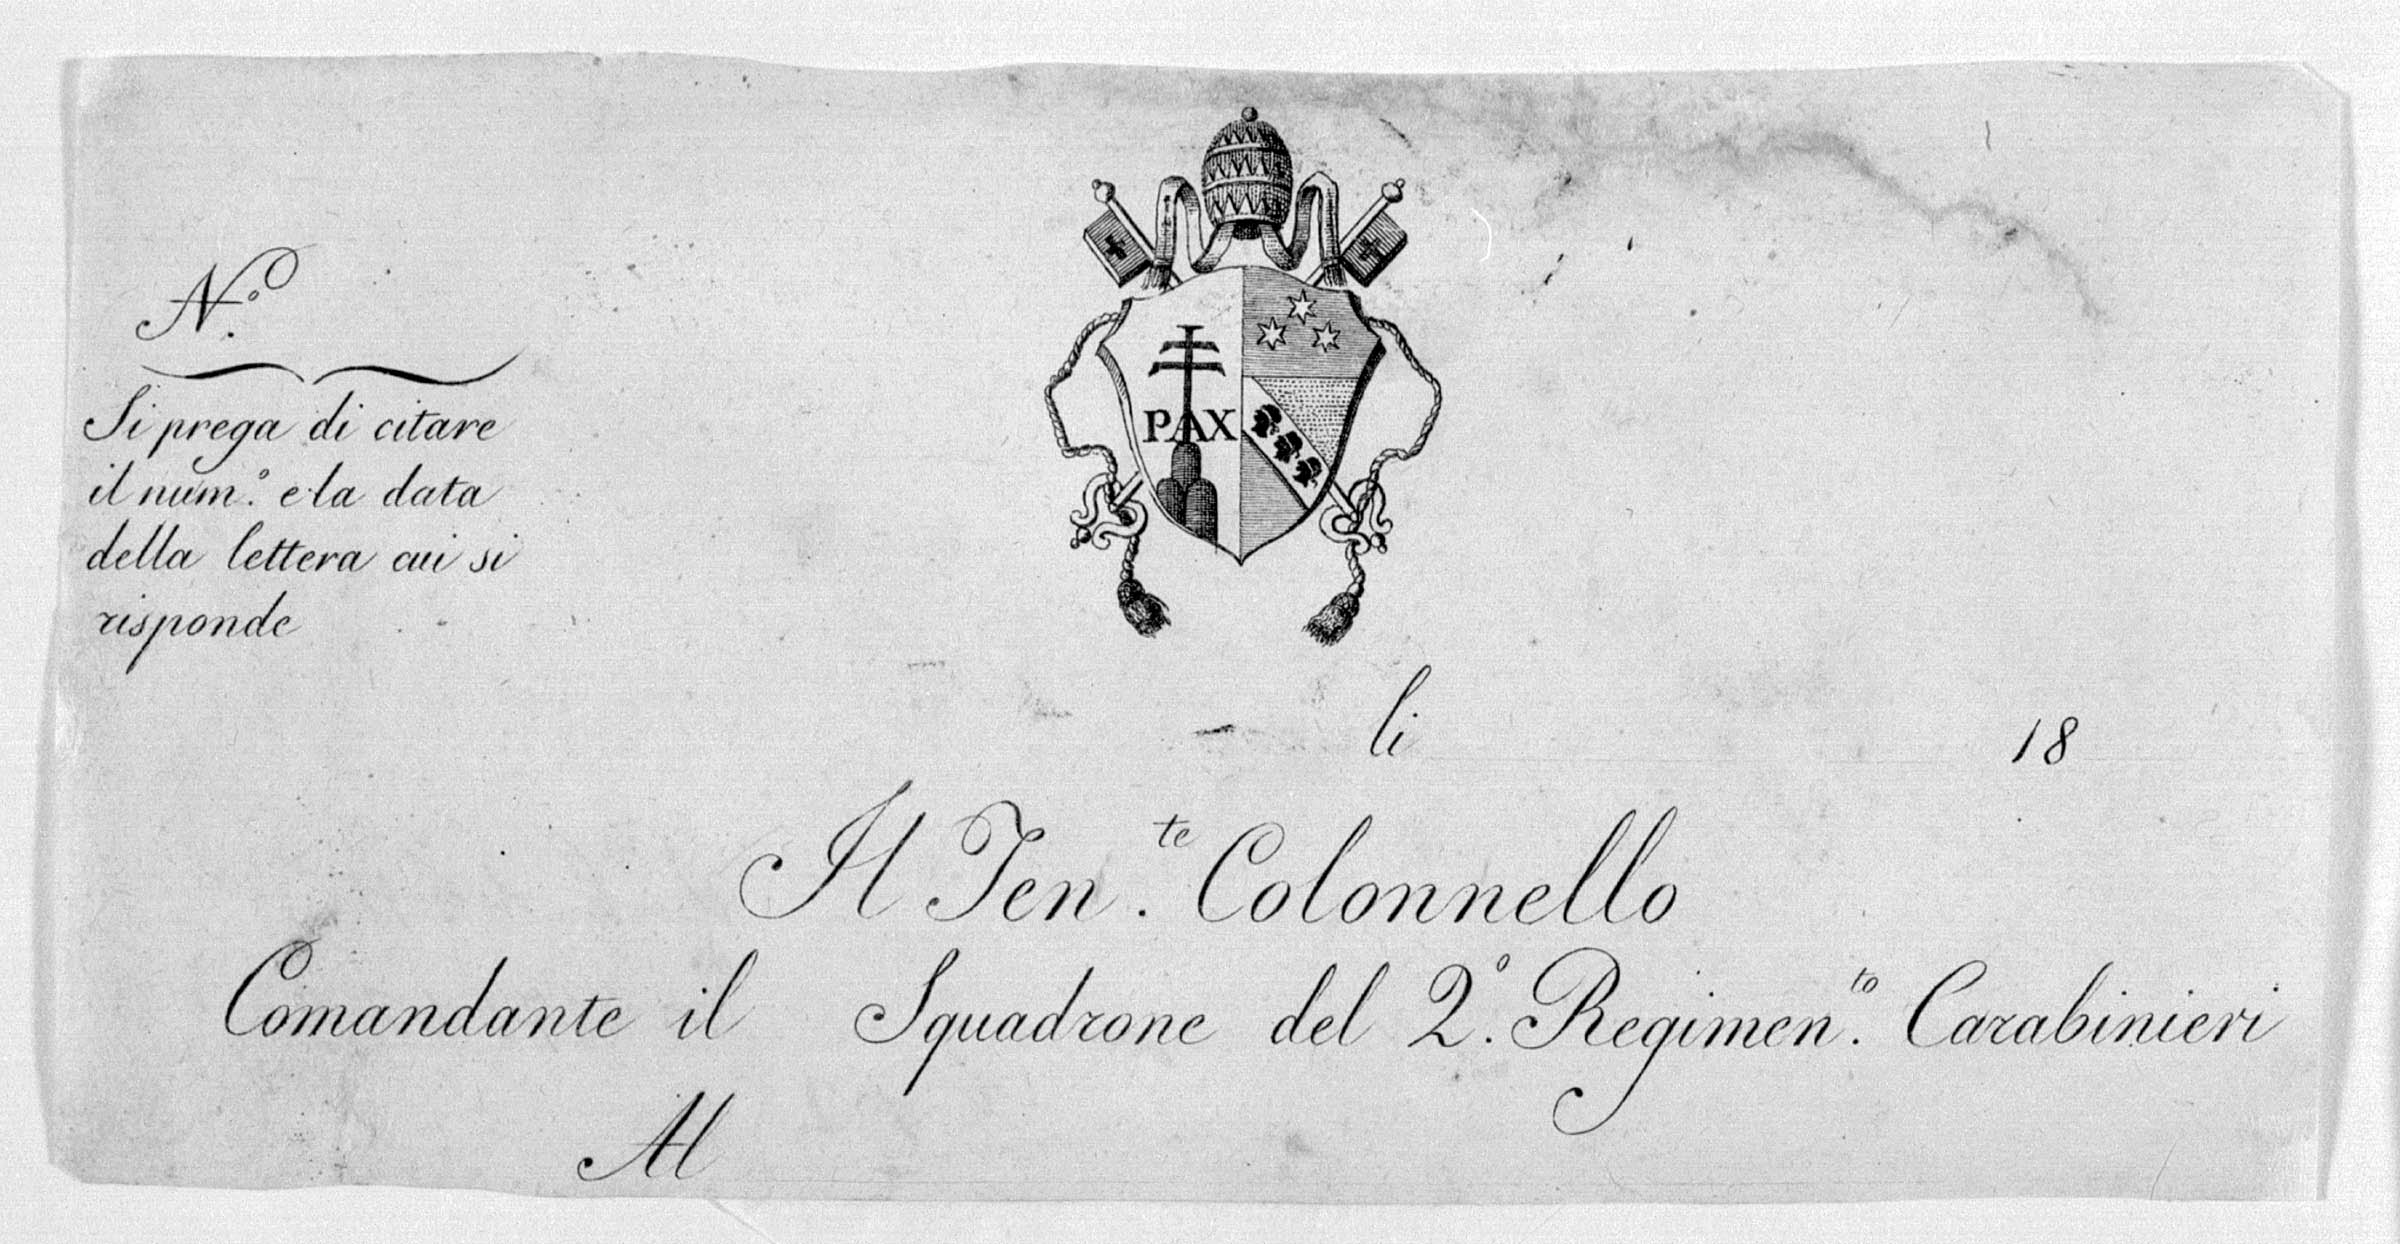 N.º
Si prega di citare
il num.º e la data
della lettera cui si
risponde
PAX
li 18
Il Ten.te Colonnello
Comandante il Squadrone del 2.º Regimen.to Carabinieri
Al